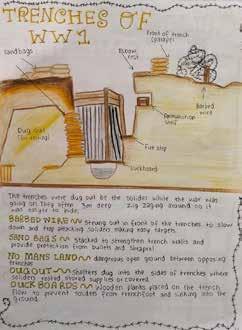 TRENCHES OF
WW1
Sandbags
Elbow
rest
Front of trench
(parapet)
Barbed
wire
Dug out
Ammunition
shelf
Fire step
Duckboard
The trenches were dug out by the soliders while the war was
going on. They often 3m deep zig zaging around so it
was longer to hide.
BARBED WIRE strung out in front of the trenches to slow
down and trap attacking soliders making easy targets.
SAND BAGS stacked to strengthen trench walls and
provide protection from bullets and shrapnel
NO MANS LAND dangerous open ground between opposing
trenches.
DUGOUT shelters dug into the sides of trenches where
soliders rested stored supplies or covered.
DUCK BOARDS wooden planks placed on the trench
floor to prevent soliders from trenchfoot and sinking into the
ground.